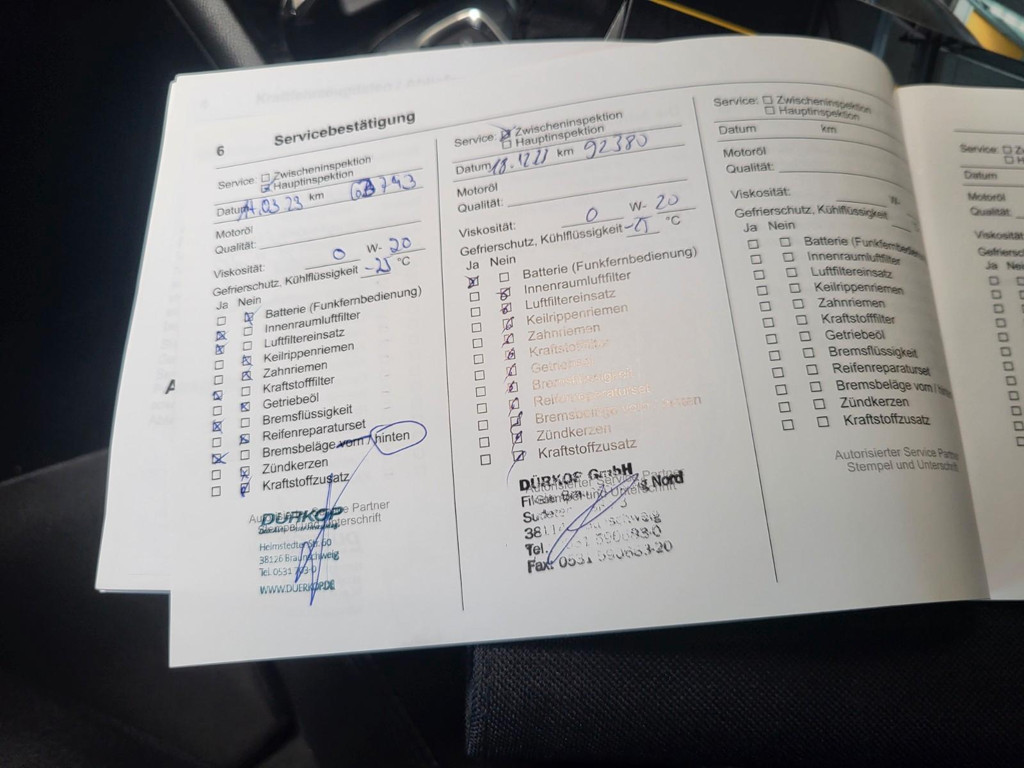 6 Servicebestätigung
Service: Zwischeninspektion
Hauptinspektion
Datum 03 23 km 743
Motoröl
Qualität:
Viskosität: 0 W- 20
Gefrierschutz, Kühlflüssigkeit -25 °C
Ja Nein
Batterie (Funkfernbedienung)
Innenraumluftfilter
Luftfiltereinsatz
Keilrippenriemen
Zahnriemen
Kraftstofffilter
Getriebeöl
Bremsflüssigkeit
Reifenreparaturset
Bremsbeläge vorn / hinten
Zündkerzen
Kraftstoffzusatz
Autorisierter Service Partner
Stempel und Unterschrift
DÜRKOP
Helmstedter Str. 60
38126 Braunschweig
Tel. 0531
WWW.DUERKOP.DE
Service: Zwischeninspektion
Hauptinspektion
Datum km 92380
Motoröl
Qualität:
Viskosität: 0 W- 20
Gefrierschutz, Kühlflüssigkeit -25 °C
Ja Nein
Batterie (Funkfernbedienung)
Innenraumluftfilter
Luftfiltereinsatz
Keilrippenriemen
Zahnriemen
Kraftstofffilter
Getriebeöl
Bremsflüssigkeit
Reifenreparaturset
Bremsbeläge vorn / hinten
Zündkerzen
Kraftstoffzusatz
Autorisierter Service Partner
Stempel und Unterschrift
DÜRKOP GmbH
Nord
Tel.
Fax: 0531 590683-20
Service: Zwischeninspektion
Hauptinspektion
Datum km
Motoröl
Qualität:
Viskosität: W-
Gefrierschutz, Kühlflüssigkeit
Ja Nein
Batterie (Funkfernbedienung)
Innenraumluftfilter
Luftfiltereinsatz
Keilrippenriemen
Zahnriemen
Kraftstofffilter
Getriebeöl
Bremsflüssigkeit
Reifenreparaturset
Bremsbeläge vorn / hinten
Zündkerzen
Kraftstoffzusatz
Autorisierter Service Partner
Stempel und Unterschrift
Service:
Datum
Motoröl
Qualität:
Ja Nein